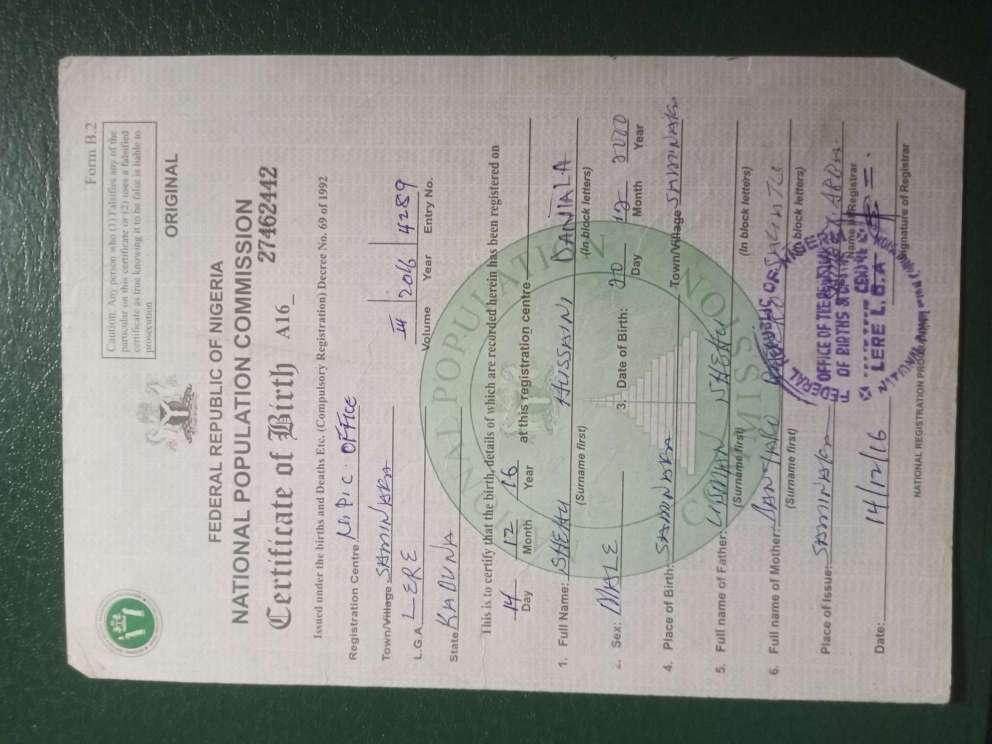 Form B.2
Caution: Any person who (1) Falsifies any of the
particular on this certificate or (2) uses a falsified
certificate as true knowing it to be false is liable to
prosecution
ORIGINAL
FEDERAL REPUBLIC OF NIGERIA
NATIONAL POPULATION COMMISSION
Certificate of Birth A16_ 27462442
Issued under the births and Deaths Etc. (Compulsory Registration) Decree No. 69 of 1992
Registration Centre N.P.C. OFFICE
Town/Village SAMINAKA
L.G.A LERE 2016 4289
Volume Year Entry No.
State KADUNA
This is to certify that the birth, details of which are recorded herein has been registered on
14 12 16 at this registration centre
Day Month Year
1. Full Name: SHEHU HUSSAINI DANJALA
(Surname first) (In block letters)
2. Sex: MALE 3. Date of Birth: 20 12 2000
Day Month Year
4. Place of Birth: SAMINAKA Town/Village SAMINAKA
5. Full name of Father: USMAN SHEHU
(Surname first) (In block letters)
6. Full name of Mother:
(Surname first) (In block letters)
Place of Issue: SAMINAKA
Name of Registrar
Date: 14/12/16
Signature of Registrar
OFFICE OF THE
OF BIRTHS &
LERE L.G.A
NATIONAL POPULATION COMMISSION